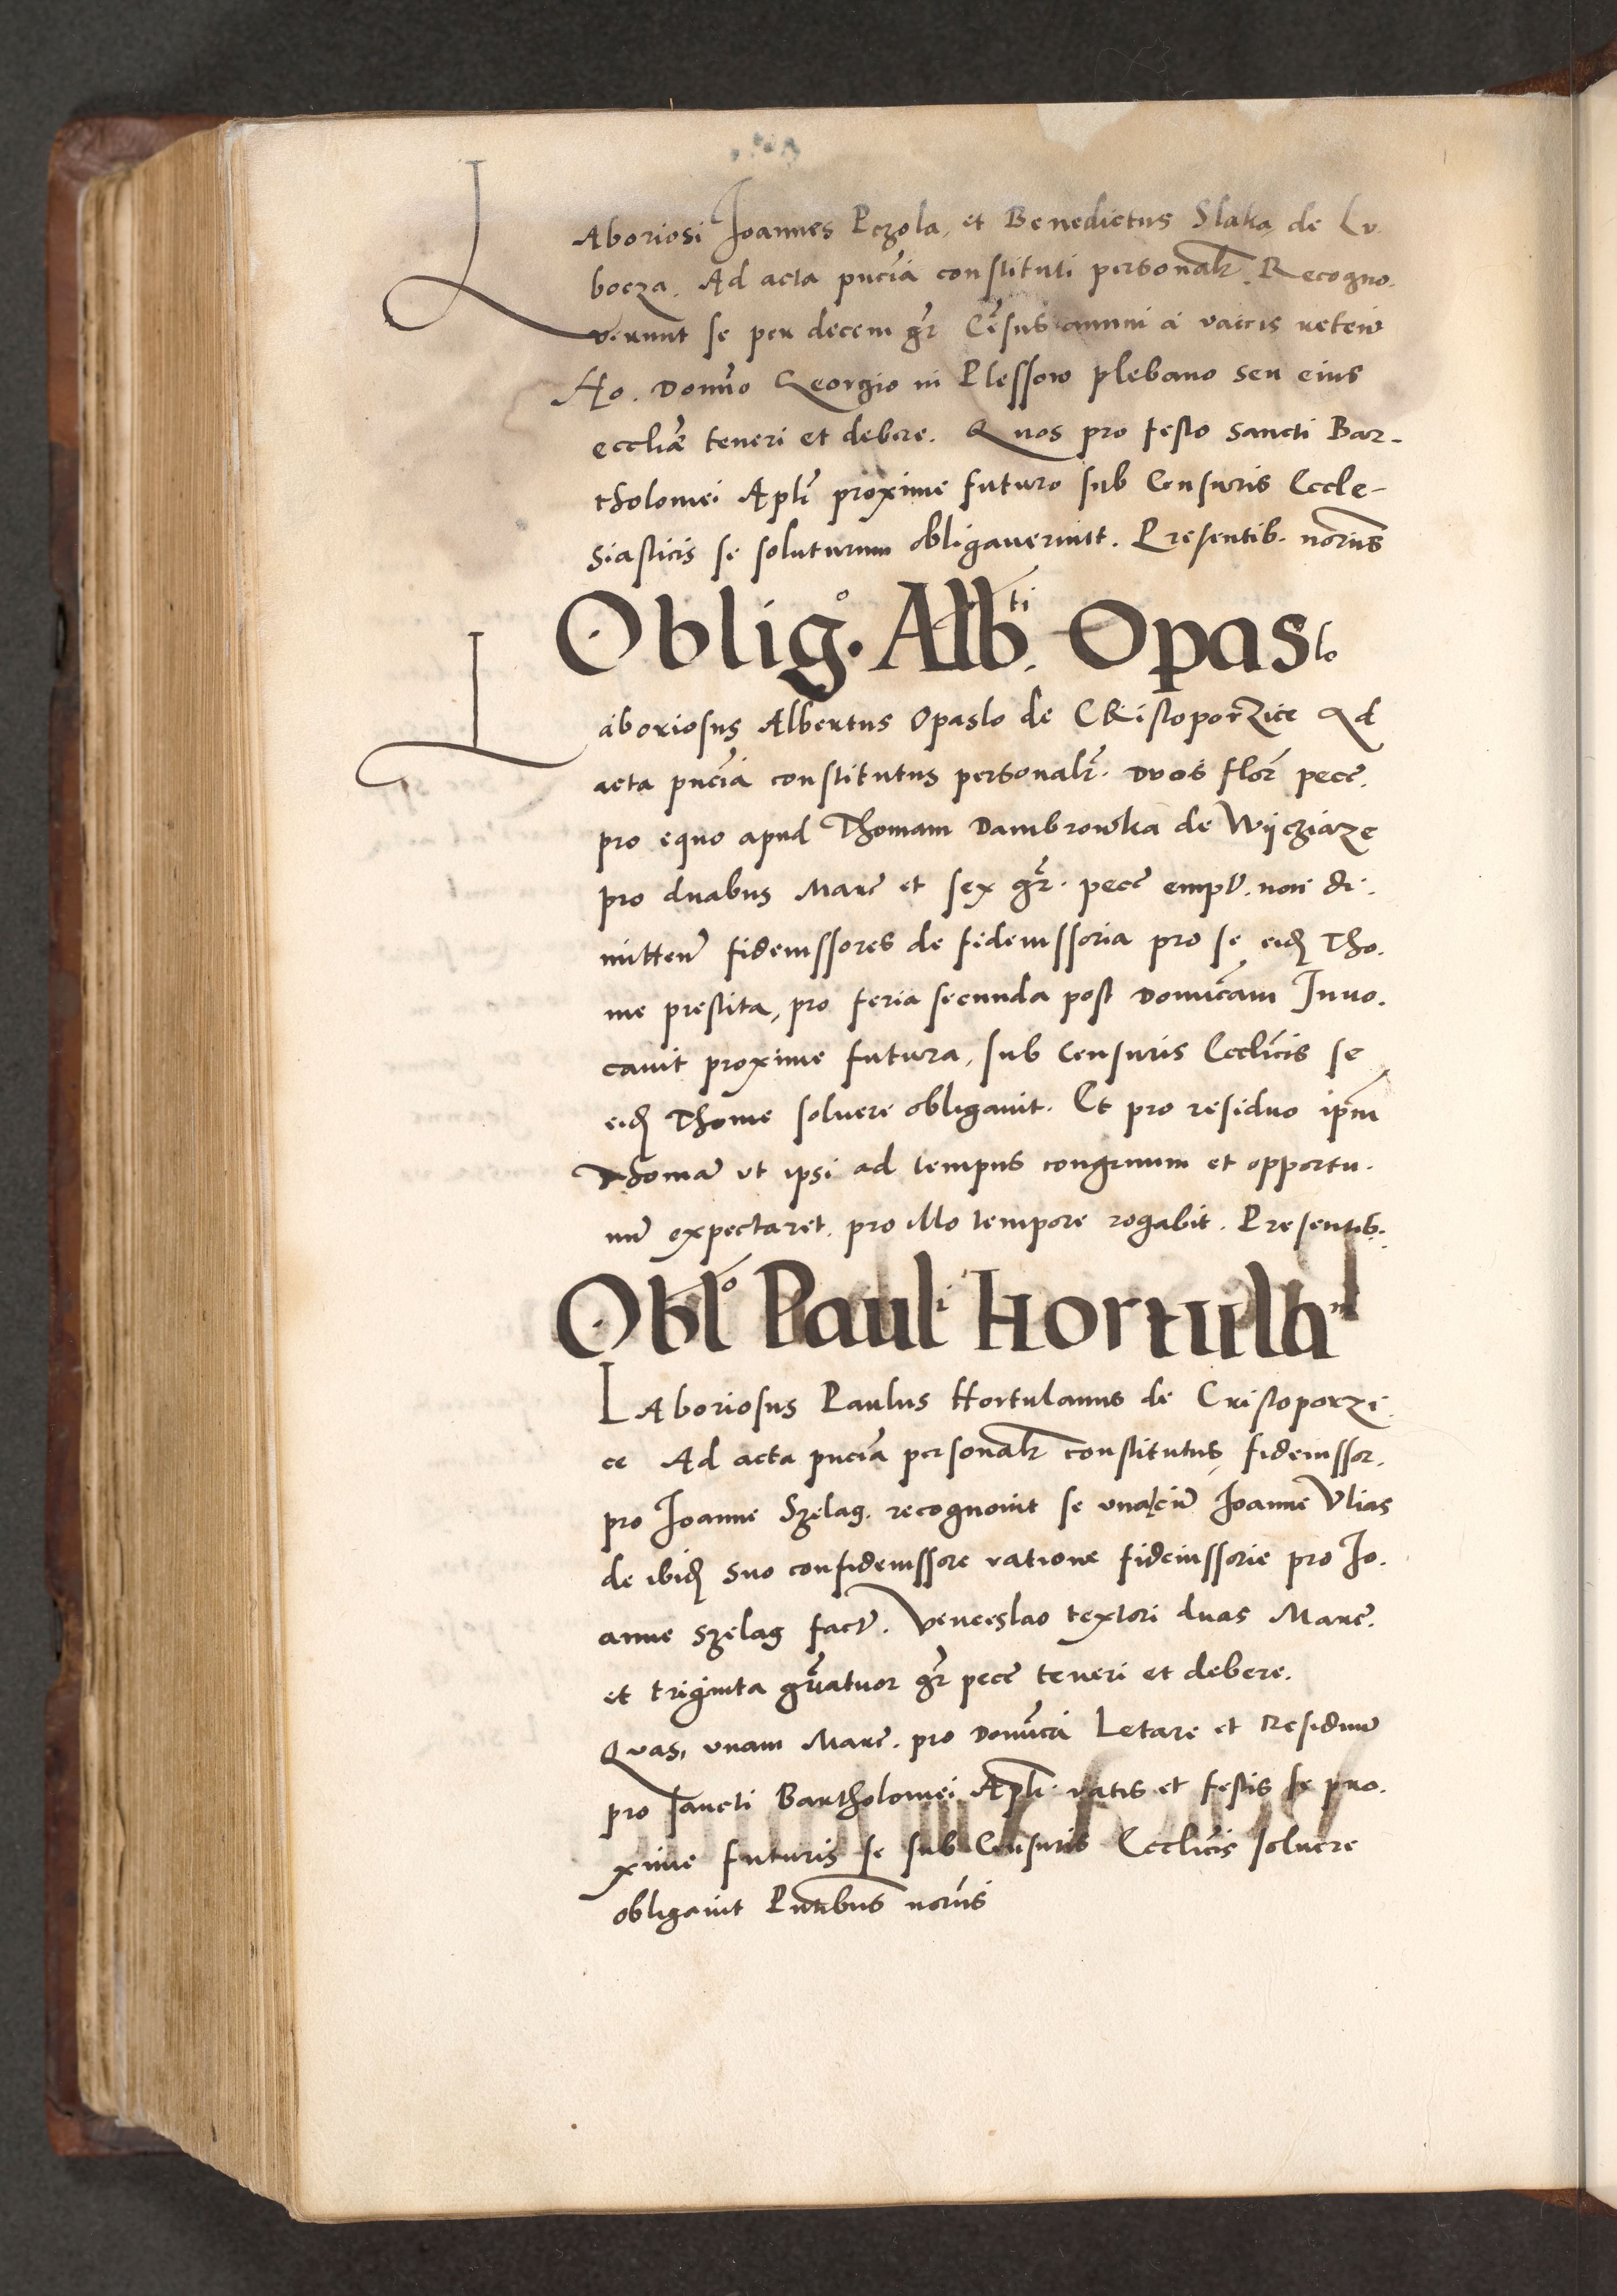 LAboriosi Joannes Pczola, et Benedictus Slaka, de Lu.
bocza. Ad acta pñcia constituti personalr̄. Recogno.
verunt se per decem gr̄ Cēsus annui a vaccis
Ho. Domīo Georgio in Plessow plebano seu eius
eccliæ teneri et debere. Quos pro festo Sancti Bar-
tholomei Apli proxime futuro sub Censuris Eccle-
siasticis se soluturum obligaverunt. Presentib. norūs
Oblig.º Alb.ti Opaslo
Laboriosus Albertus Opaslo de CRistoporzice Ad
acta pñcia constitutus personalr̄. Duos flor̄ pecc̄.
pro equo apud Thomam Dambrowka de Wijcziaze
pro duabus Marc̄ et sex gr̄. pecc̄ empt̄. non di.
mitten̄ fideiussores de fideiussoria pro se eid Tho.
me prestita, pro feria secunda post Domīcam Invo.
cavit proxime futura, sub Censuris Ecclicis se
eid Thome solvere obligavit. Et pro residuo ip̄m
Thomā ut ipsi ad tempus congruum et opportu.
nū expectaret. pro illo tempore rogabit. Presentib.
Obl.º Pauli Hortulaⁿⁱ
LAboriosus Paulus Hortulanus de Cristoporzi.
ce Ad acta pñcia personalr̄ constitutus, fideiussor.
pro Joanne Szelag. recognovit se una cū Joanne Vlias
de ibid suo confideiussore ratione fideiussorie pro Jo.
anne Szelag fact̄. Venceslao textori duas Marc̄.
et triginta quatuor gr̄ pecc̄ teneri et debere.
Quas, unam Marc̄. pro Domīca Letare et Residuū
pro sancti Bartholomei Apli. ratis et festis se pro.
xime futuris se sub Censuris Ecclicis solvere
obligavit Pñtibus norūs